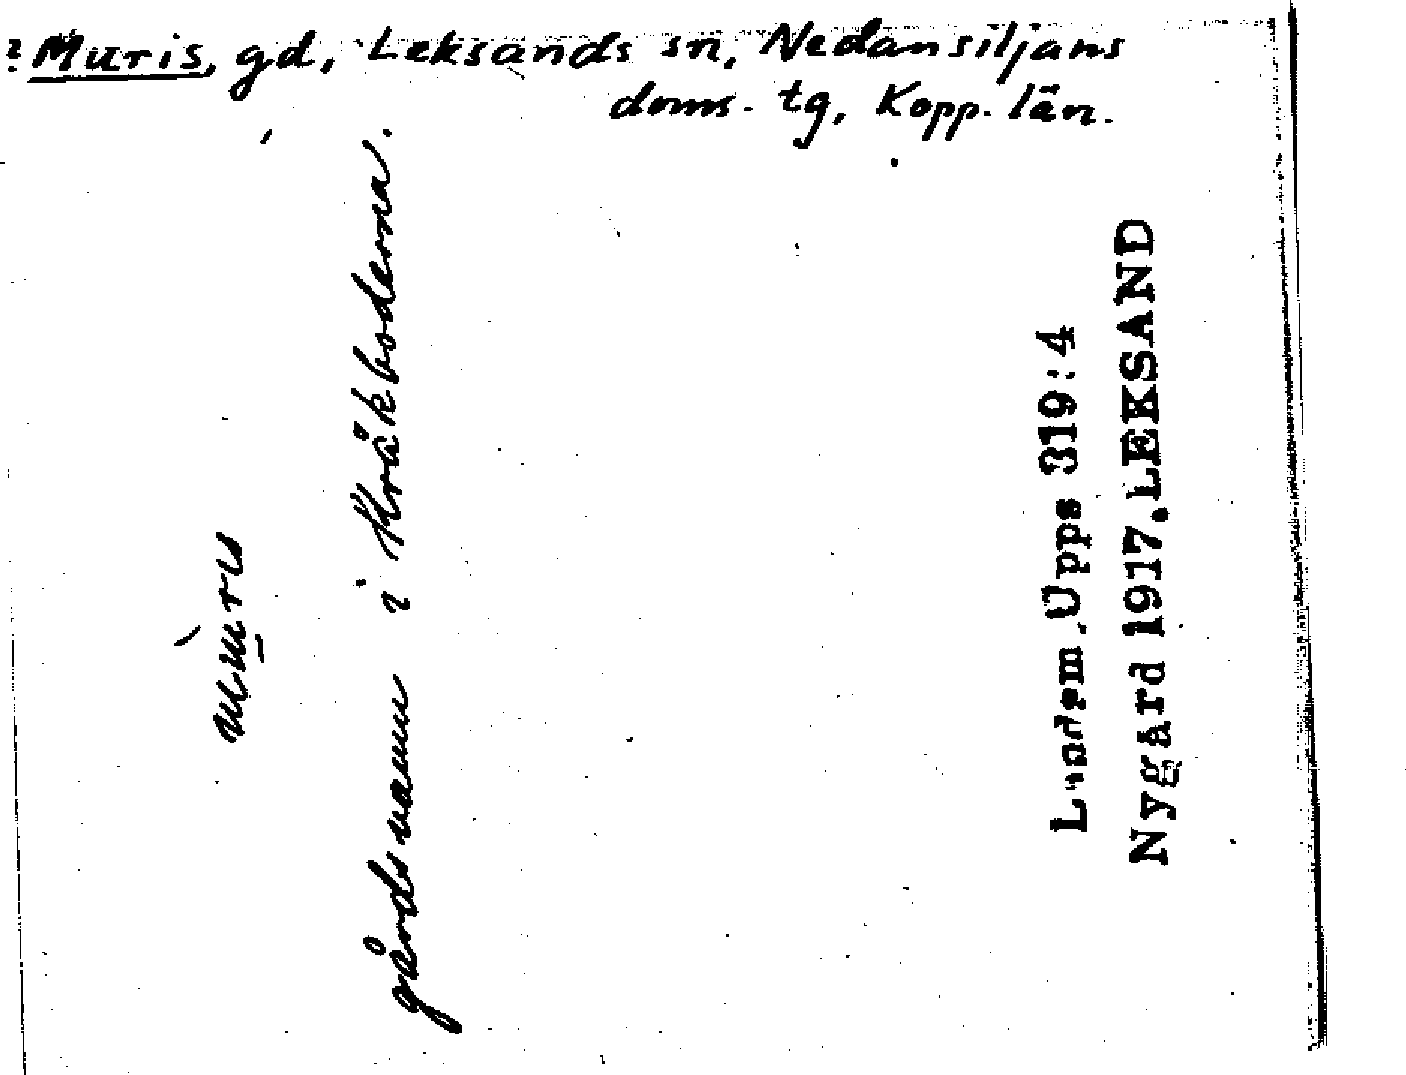 ? Muris, gd, Leksands sn, Nedansiljans
doms. tg, Kopp. län.
mùris
gårdsnamn i Kråkbodarna.
Landsm. Upps 319:4
Nygård 1917. LEKSAND